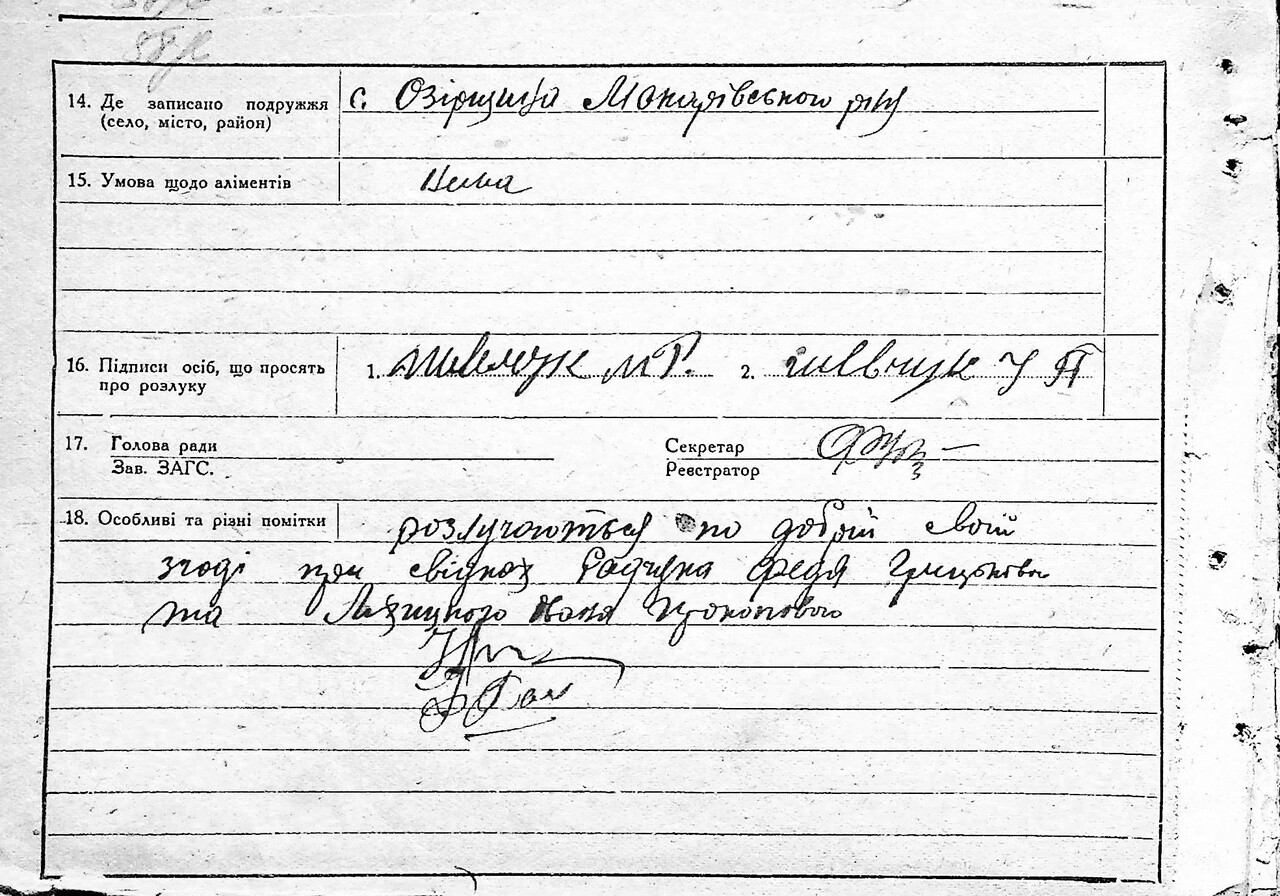 58
14. Де записано подружжя с. Озірщина Макарівського р-ну
(село, місто, район)
15. Умова щодо аліментів Нема
16. Підписи осіб, що просять 1. М Г. 2. Шевчук У П
про розлуку
17. Голова ради Секретар
Зав. ЗАГС. Реєстратор
18. Особливі та різні помітки розлучаються по добрій своій
згоді при свідках Радчука Федя Грицькова
та Лязицкого Івана Прокопового